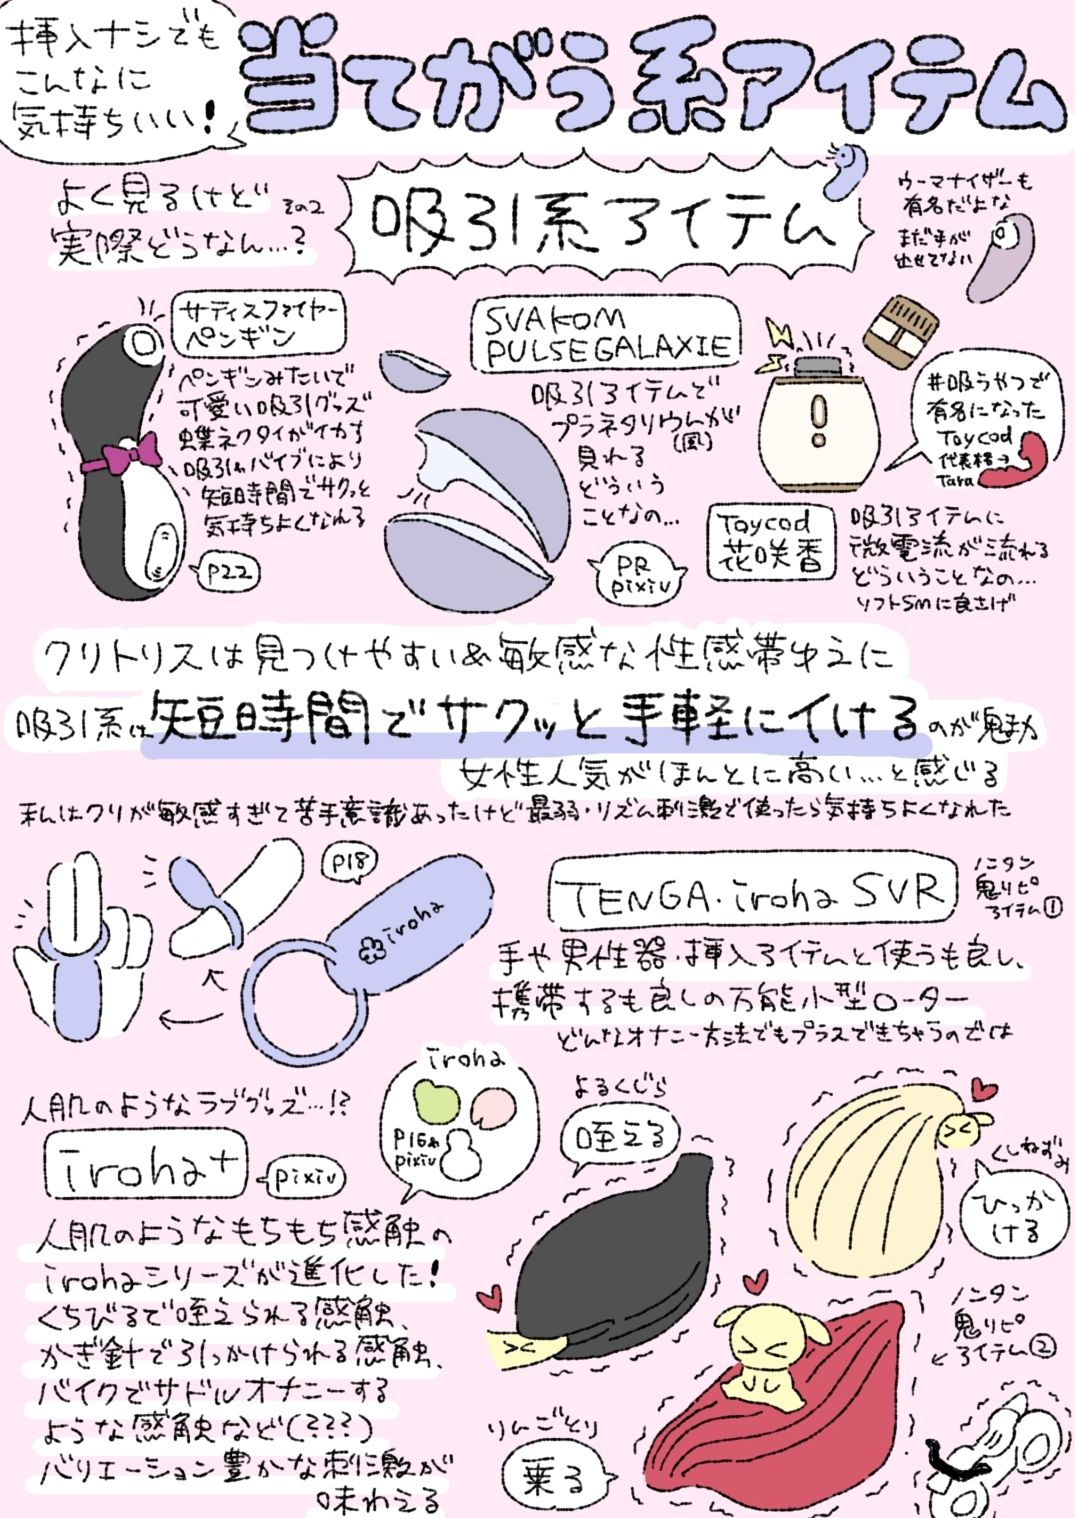 挿入ナシでも
こんなに
気持ちいい!
当てがう系アイテム
よく見るけど その2
実際どうなん…?
吸引系アイテム
ウーマナイザーも
有名だよな
まだ手が
出せてない
サティスファイヤー
ペンギン
ペンギンみたいで
可愛い吸引グッズ
蝶ネクタイがイカす
吸引&バイブにより
短時間でサクッと
気持ちよくなれる
P22
SVAKOM
PULSE GALAXIE
吸引アイテムで
プラネタリウムが
(風)
見れる
どういう
ことなの…
PR
pixiv
#吸うやつで
有名になった
Toycod
代表格→
Tara
Toycod
花咲香
吸引アイテムに
微電流が流れる
どういうことなの…
ソフトSMに良さげ
クリトリスは見つけやすい&敏感な性感帯ゆえに
吸引系は短時間でサクッと手軽にイけるのが魅力
女性人気がほんとに高い…と感じる
私はクリが敏感すぎて苦手意識あったけど最弱・リズム刺激で使ったら気持ちよくなれた
P18
iroha
TENGA・iroha SVR
ノンタン
鬼リピ
アイテム①
手や男性器・挿入アイテムと使うも良し、
携帯するも良しの万能小型ローター
どんなオナニー方法でもプラスできちゃうのでは
人肌のようなラブグッズ…!?
iroha+
pixiv
iroha
P16&
pixiv
人肌のようなもちもち感触の
irohaシリーズが進化した!
くちびるで咥えられる感触、
かぎ針で引っかけられる感触、
バイクでサドルオナニーする
ような感触など(???)
バリエーション豊かな刺激が
味わえる
よるくじら
咥える
くしねずみ
ひっか
ける
ノンタン
鬼リピ
アイテム②
りんごとり
乗る